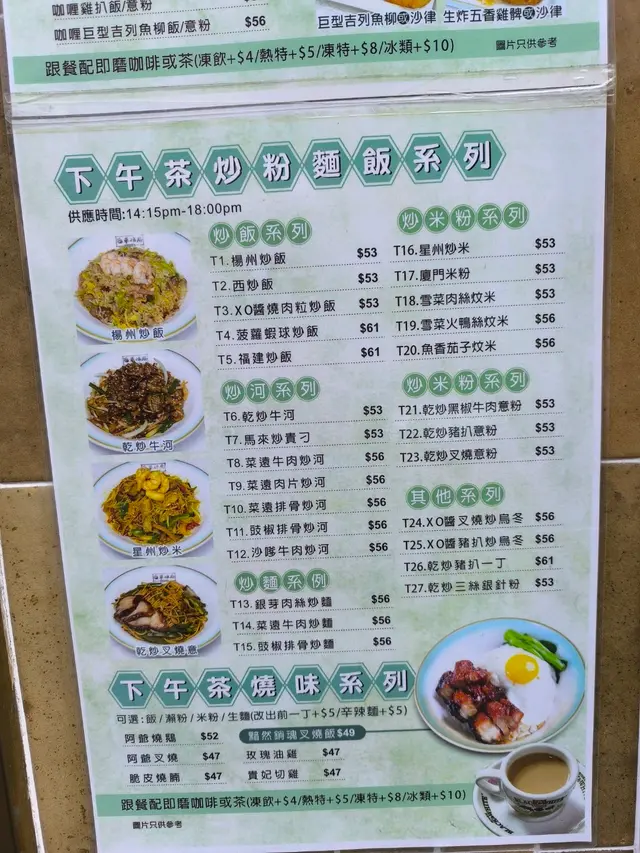 咖喱雞扒飯/意粉
咖喱巨型吉列魚柳飯/意粉 $56
巨型吉列魚柳或沙律 生炸五香雞髀或沙律
跟餐配即磨咖啡或茶(凍飲+$4/熱特+$5/凍特+$8/冰類+$10) 圖片只供參考
下午茶炒粉麵飯系列
供應時間:14:15pm-18:00pm
炒飯系列
T1.楊州炒飯 $53
T2.西炒飯 $53
T3.XO醬燒肉粒炒飯 $53
T4.菠蘿蝦球炒飯 $61
T5.福建炒飯 $61
炒河系列
T6.乾炒牛河 $53
T7.馬來炒貴刁 $53
T8.菜遠牛肉炒河 $56
T9.菜遠肉片炒河 $56
T10.菜遠排骨炒河 $56
T11.豉椒排骨炒河 $56
T12.沙嗲牛肉炒河 $56
炒麵系例
T13.銀芽肉絲炒麵 $56
T14.菜遠牛肉炒麵 $56
T15.豉椒排骨炒麵 $56
炒米粉系列
T16.星州炒米 $53
T17.廈門米粉 $53
T18.雪菜肉絲炆米 $53
T19.雪菜火鴨絲炆米 $56
T20.魚香茄子炆米 $56
炒米粉系列
T21.乾炒黑椒牛肉意粉 $53
T22.乾炒豬扒意粉 $53
T23.乾炒叉燒意粉 $53
其他系列
T24.XO醬叉燒炒烏冬 $56
T25.XO醬豬扒炒烏冬 $56
T26.乾炒豬扒一丁 $61
T27.乾炒三絲銀針粉 $53
楊州炒飯
乾炒牛河
星州炒米
乾炒叉燒意
下午茶燒味系列
可選:飯/瀨粉/米粉/生麵(改出前一丁+$5/辛辣麵+$5)
阿爺燒鵝 $52
阿爺叉燒 $47
脆皮燒腩 $47
黯然銷魂叉燒飯$49
玫瑰油雞 $47
貴妃切雞 $47
跟餐配即磨咖啡或茶(凍飲+$4/熱特+$5/凍特+$8/冰類+$10)
圖片只供參考